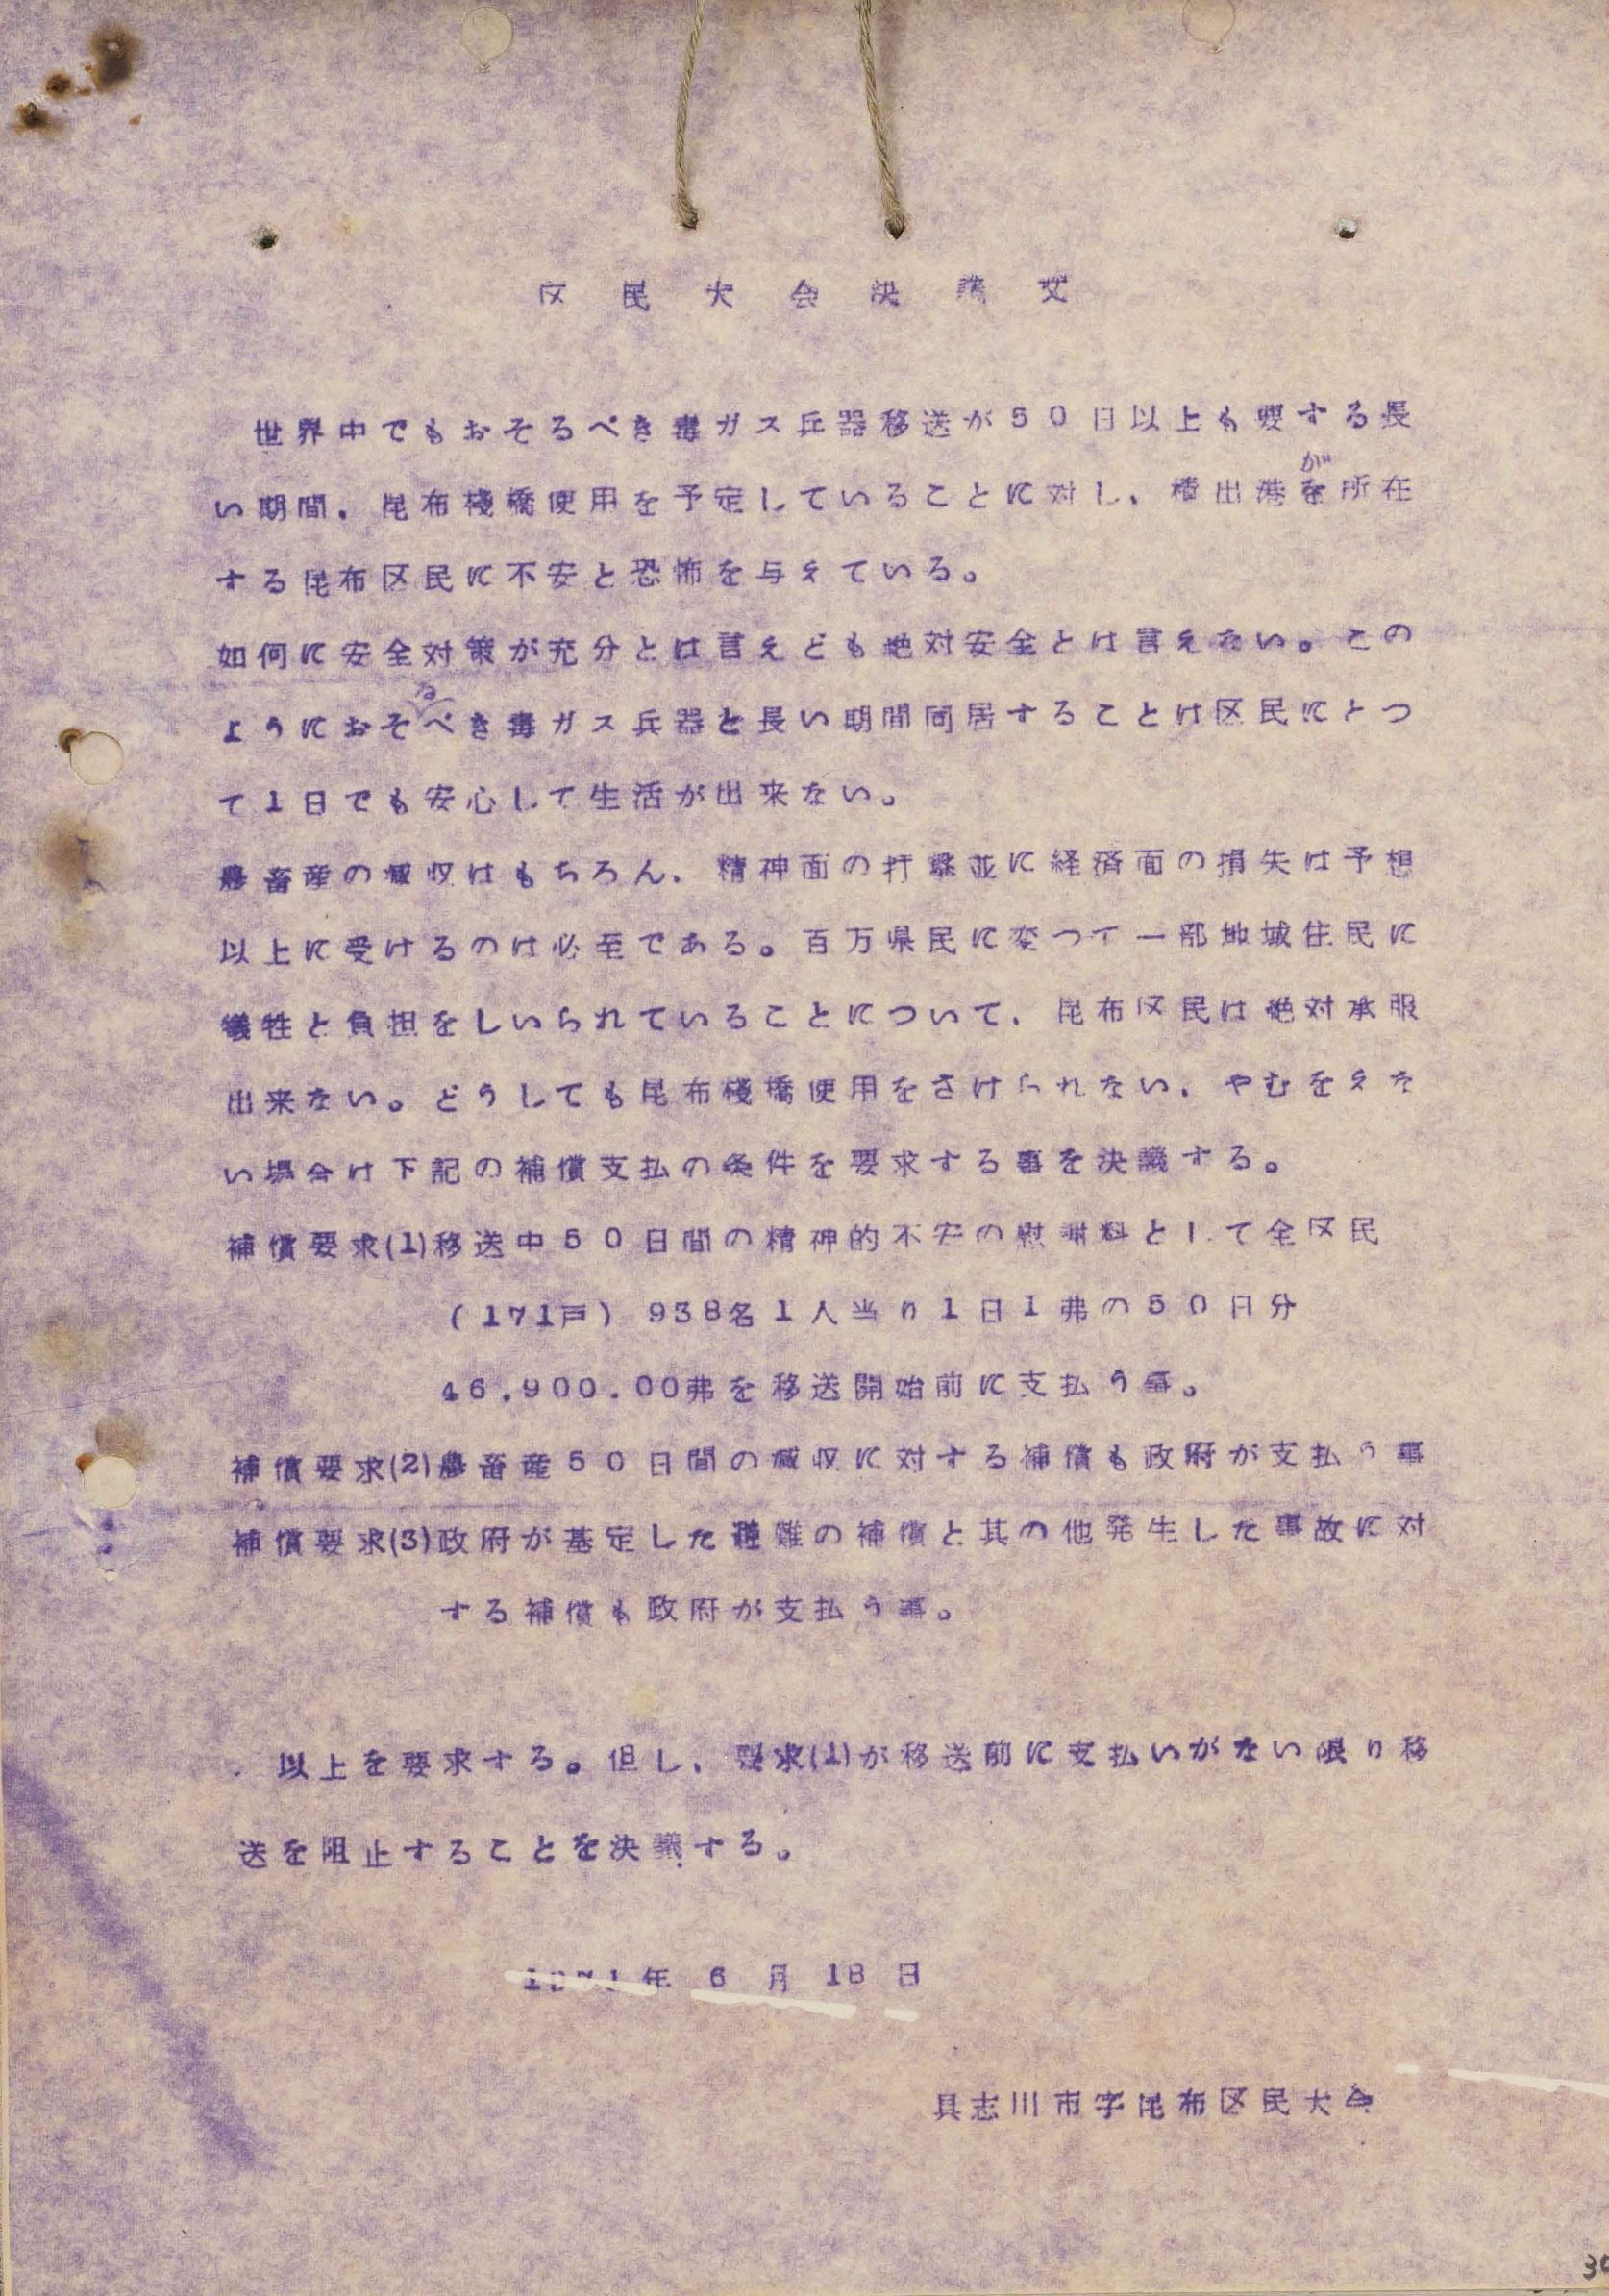 区民大会決議文
世界中でもおそるべき毒ガス兵器移送が50日以上も要する長
が
い期間、昆布棧橋使用を予定していることに対し、積出港を所在
する昆布区民に不安と恐怖を与えている。
如何に安全対策が充分とは言えども絶対安全とは言えない。この
る
ようにおそべき毒ガス兵器と長い期間同居することは区民にとつ
て1日でも安心して生活が出来ない。
農畜産の減収はもちろん、精神面の打撃並に経済面の損失は予想
以上に受けるのは必至である。百万県民に変つて一部地域住民に
犠牲と負担をしいられていることについて、昆布区民は絶対承服
出来ない。どうしても昆布棧橋使用をさけられない、やむをえな
い場合は下記の補償支払の条件を要求する事を決議する。
補償要求(1)移送中50日間の精神的不安の慰謝料として全区民
(171戸) 938名1人当り1日1弗の50日分
46.900.00弗を移送開始前に支払う事。
補償要求(2)農畜産50日間の減収に対する補償も政府が支払う事
補償要求(3)政府が基定した避難の補償と其の他発生した事故に対
する補償も政府が支払う事。
以上を要求する。但し、要求(1)が移送前に支払いがない限り移
送を阻止することを決議する。
1971年 6 月 18 日
具志川市字昆布区民大会